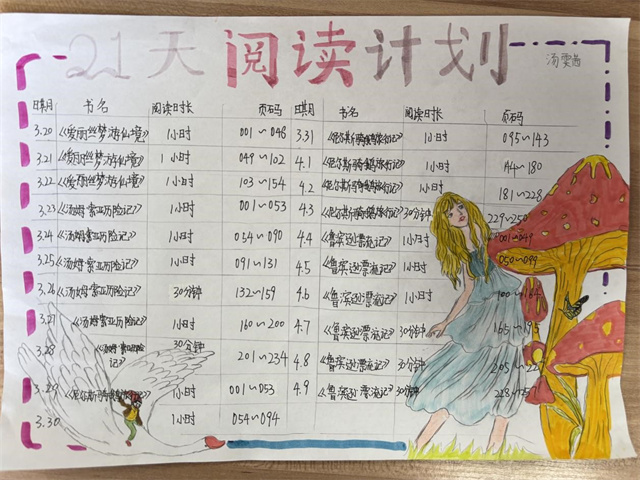 21天阅读计划
汤雯茜
日期 书名 阅读时长 页码 日期 书名 阅读时长 页码
3.20 《爱丽丝梦游仙境》 1小时 001~048 3.31 《尼尔斯骑鹅旅行记》 1小时 095~143
3.21 《爱丽丝梦游仙境》 1小时 049~102 4.1 《尼尔斯骑鹅旅行记》 1小时 144~180
3.22 《爱丽丝梦游仙境》 1小时 103~154 4.2 《尼尔斯骑鹅旅行记》 1小时 181~228
3.23 《汤姆索亚历险记》 1小时 001~053 4.3 《尼尔斯骑鹅旅行记》 30分钟 229~250
3.24 《汤姆索亚历险记》 1小时 054~090 4.4 《鲁滨逊漂流记》 1小时 001~049
3.25 《汤姆索亚历险记》 1小时 091~131 4.5 《鲁滨逊漂流记》 1小时 050~099
3.26 《汤姆索亚历险记》 30分钟 132~159 4.6 《鲁滨逊漂流记》 1小时 100~164
3.27 《汤姆索亚历险记》 1小时 160~200 4.7 《鲁滨逊漂流记》 30分钟 165~195
3.28 《汤姆索亚历险记》 30分钟 201~234 4.8 《鲁滨逊漂流记》 30分钟
3.29 《尼尔斯骑鹅旅行记》 1小时 001~053 4.9 《鲁滨逊漂流记》 30分钟
3.30 1小时 054~094